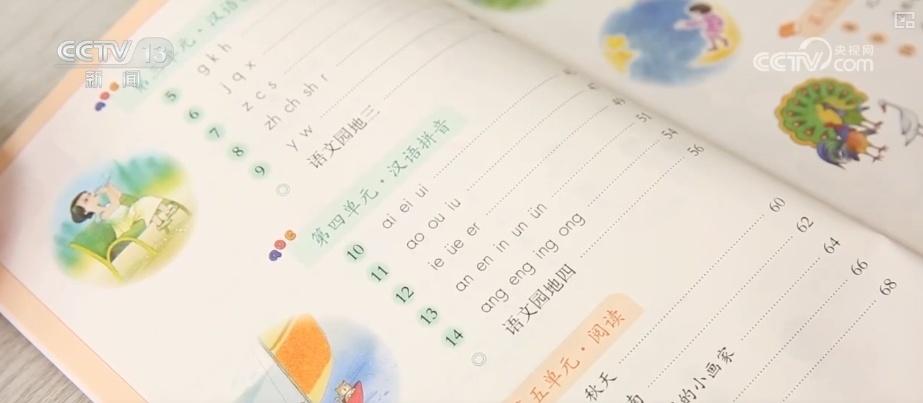 CCTV 13
新闻
央视网
CCTV.com
单元·汉语
5 g k h
6 j q x
7 z c s
8 zh ch sh r
9 y w
语文园地三
第四单元·汉语拼音
10 ai ei ui
11 ao ou iu 47
12 ie üe er 49
13 an en in un ün 51
14 ang eng ing ong 54
语文园地四 56
五单元·阅读
秋天 60
南 62
的小画家 64
66
68